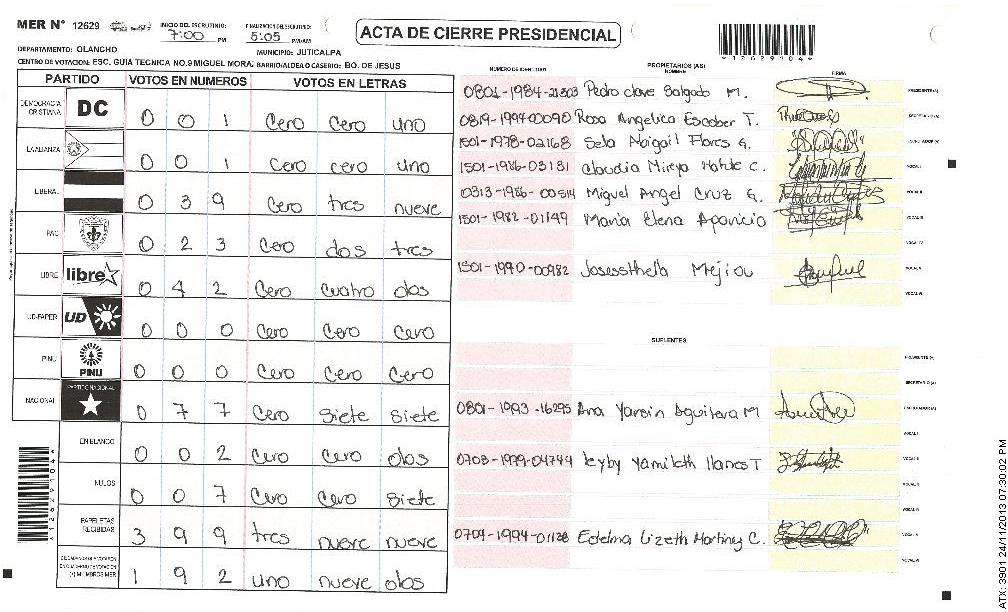 MER N° 12629 INICIO DEL ESCRUTINIO: 7:00 PM FINALIZACION DEL ESCRUTINIO: 5:05 PM/AM
ACTA DE CIERRE PRESIDENCIAL
*12629104*
DEPARTAMENTO: OLANCHO MUNICIPIO: JUTICALPA
CENTRO DE VOTACION: ESC. GUIA TECNICA NO.9 MIGUEL MORA, BARRIO/ALDEA O CASERIO: BO. DE JESUS
PARTIDO VOTOS EN NUMEROS VOTOS EN LETRAS
DEMOCRACIA CRISTIANA DC 0 0 1 Cero Cero uno
LA ALIANZA 0 0 1 Cero cero uno
LIBERAL 0 3 9 Cero tres nueve
PAC 0 2 3 Cero dos tres
LIBRE libre 0 4 2 Cero cuatro dos
UD-FAPER UD 0 0 0 Cero Cero Cero
PINU PINU 0 0 0 Cero Cero Cero
NACIONAL PARTIDO NACIONAL 0 7 7 Cero siete siete
EN BLANCO 0 0 2 Cero Cero dos
NULOS 0 0 7 Cero Cero siete
PAPELETAS RECIBIDAS 3 9 9 tres nueve nueve
1 9 2 uno nueve dos
*12629104*
NUMERO DE IDENTIDAD PROPIETARIOS (AS) NOMBRE FIRMA
0801-1984-21303 Pedro clave Salgado M. PRESIDENTE (A)
0819-1994-00090 Rosa Angelica Escober T. SECRETARIO (A)
1501-1978-02168 Sela Abigail Flores G. ESCRUTADOR (A)
1501-1986-03131 Claudia Mireya C. VOCAL I
0313-1986-00514 Miguel Angel Cruz G. VOCAL II
1501-1982-01149 Maria Elena Aparicio VOCAL III
VOCAL IV
1501-1990-00982 Mejiou VOCAL V
VOCAL VI
SUPLENTES
PRESIDENTE (A)
SECRETARIO (A)
0801-1993-16295 Ana Yansin Aguilera M ESCRUTADOR (A)
VOCAL I
0703-1979-04744 leyby Yamileth llanes T VOCAL II
VOCAL III
VOCAL IV
0704-1994-01128 Edelma Lizeth Martinez C. VOCAL V
VOCAL VI
ATX: 3901 24/11/2013 07:30:02 PM